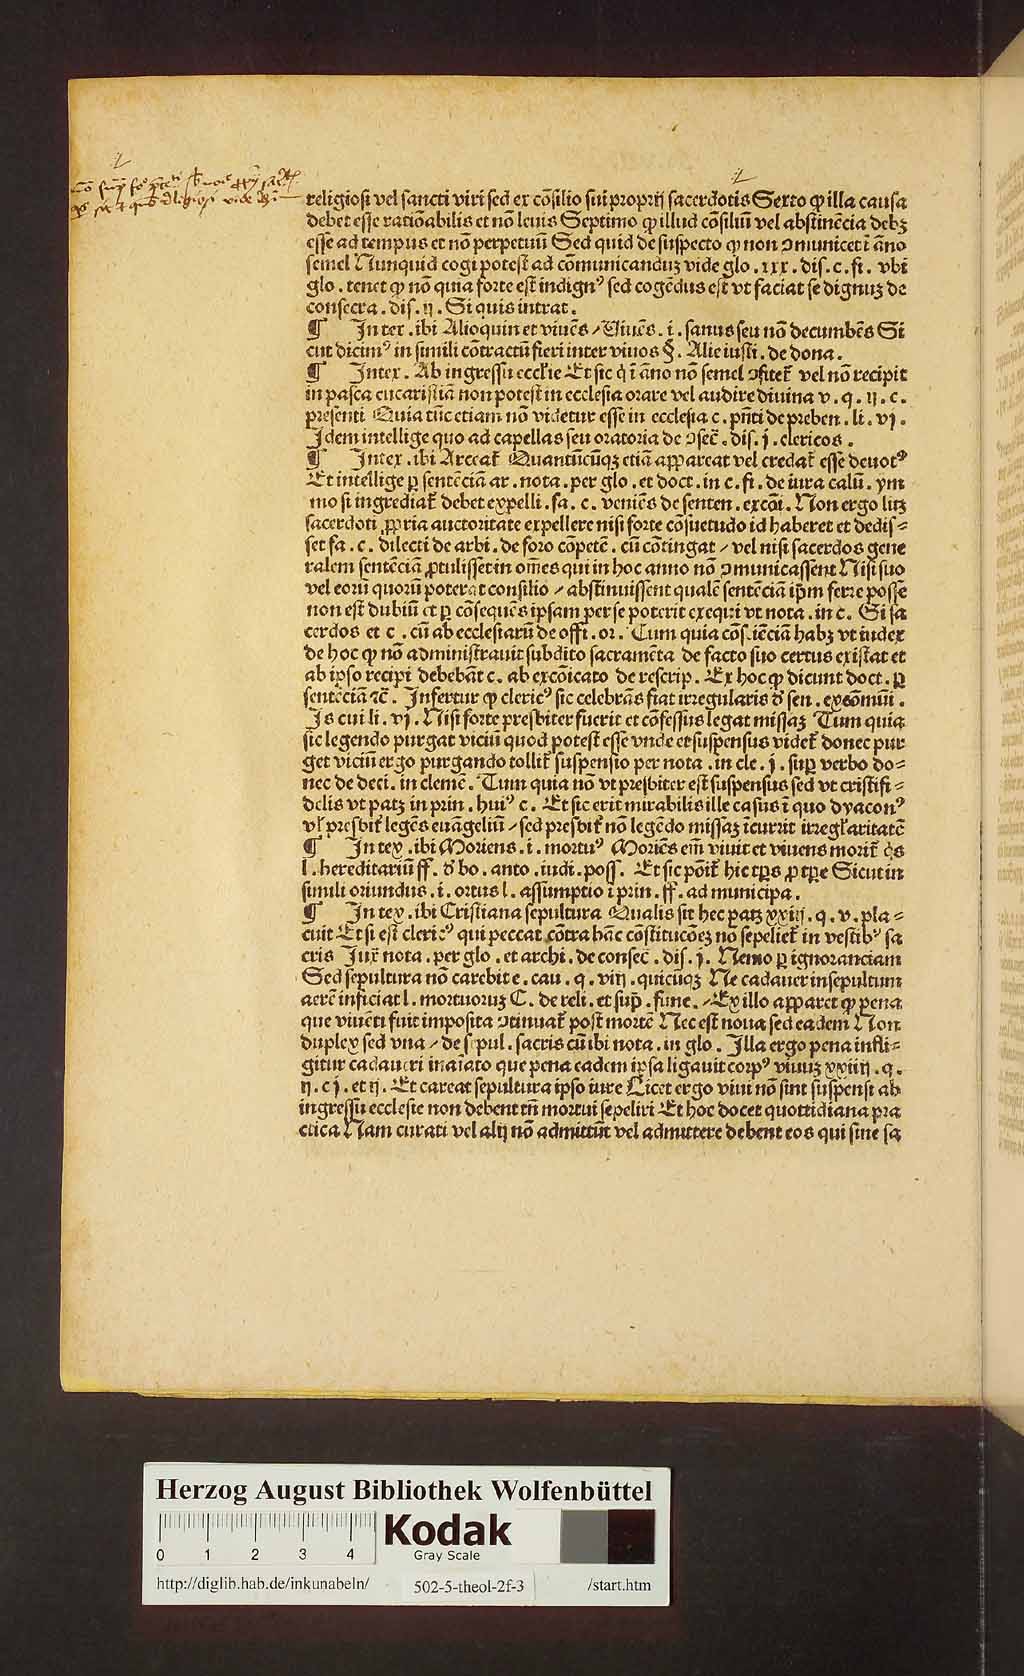 religiosi vel sancti viri sed ex cōsilio sui proprij sacerdotis Sexto ꝙ illa causa
debet esse ratiōabilis et nō leuis Septimo ꝙ illud cōsiliū vel abstinēcia debꝫ
esse ad tempus et nō perpetuū Sed quid de suspecto ꝙ non ꝯmunicet ī āno
semel Nunquid cogi potest ad cōmunicanduꝫ vide glo . xxx . dis . c . fi . vbi
glo . tenet ꝙ nō quia forte est indignꝰ sed cogēdus est vt faciat se dignuꝫ de
consecra . dis . ij . Si quis intrat .
¶ In tex . ibi Alioquin et viuēs / Viuēs . i . sanus seu nō decumbēs Si
cut dicimꝰ in simili cōtractū fieri inter viuos § . Alie iusti . de dona .
¶ Intex . Ab ingressu eccl'ie Et sic q̇ ī āno nō semel ꝯfitet᷑ vel nō recipit
in pasca eucaristiā non potest in ecclesia orare vel audire diuina v . q . ij . c .
presenti Quia tūc etiam nō videtur esse in ecclesia c . pn̄ti de preben . li . vj .
Idem intellige quo ad capellas seu oratoria de ꝯsec̄ . dis . j . clericos .
¶ Intex . ibi Arceat᷑ Quantūcūqꝫ etiā appareat vel credat᷑ esse deuotꝰ
Et intellige ꝑ sentēciā ar . nota . per glo . et doct . in c . fi . de iura calū . ym
mo si ingrediat᷑ debet expelli . fa . c . veniēs de senten . excōi . Non ergo litꝫ
sacerdoti ꝓpria auctoritate expellere nisi forte cōsuetudo id haberet et dedis⸗
set fa . c . dilecti de arbi . de foro cōpetē . cū cōtingat / vel nisi sacerdos gene
ralem sentēciā ꝓtulisset in om̄es qui in hoc anno nō ꝯmunicassent Nisi suo
vel eorū quorū poterat consilio / abstinuissent qualē sentēciā ip̄m ferre possē
non est dubiū et ꝑ cōsequēs ipsam per se poterit exequi vt nota . in c . Si sa
cerdos et c . cū ab ecclesiarū de offi . or . Cum quia cōsciēciā habꝫ vt iudex
de hoc ꝙ nō administrauit subdito sacramēta de facto suo certus existat et
ab ipso recipi debebāt c . ab excōicato de rescrip . Ex hoc ꝙ dicunt doct . ꝑ
sentēciā ⁊c̄ . Infertur ꝙ clericꝰ sic celebrās fiat irregularis đ sen . excōmūi .
Is cui li . vj . Nisi forte presbiter fuerit et cōfessus legat missaꝫ Tum quia
sic legendo purgat viciū quod potest esse vnde et suspensus videt᷑ donec pur
get viciū ergo purgando tollit᷑ suspensio per nota . in cle . j . suꝑ verbo do⸗
nec de deci . in clemē . Tum quia nō vt presbiter est suspensus sed vt cristifi⸗
delis vt patꝫ in prin . huiꝰ c . Et sic erit mirabilis ille casus ī quo dyaconꝰ
vl' presbit᷑ legēs euāgeliū / sed presbit᷑ nō legēdo missaꝫ īcurrit irregl'aritatē
¶ In tex . ibi Moriens . i . mortuꝰ Moriēs em̄ viuit et viuens morit᷑ q̇s
l . hereditariū ff . đ bo . anto . iudi . poss . Et sic pōit᷑ hic tp̄s ꝓ tp̄e Sicut in
simili oriundus . i . ortus l . assumptio ī prin . ff . ad municipa .
¶ In tex . ibi Cristiana sepultura Qualis sit hec patꝫ xxiij . q . v . pla⸗
cuit Et si est clericꝰ qui peccat cōtra hāc cōstitucōeꝫ nō sepeliet᷑ in vestibꝰ sa
cris Iux̄ nota . per glo . et archi . de consec̄ . dis . j . Nemo ꝑ ignoranciam
Sed sepultura nō carebit e . cau . q . viij . quicūqꝫ Ne cadauer insepultum
aerē inficiat l . mortuoruꝫ C . de reli . et sup̄ . fune . / Ex illo apparet ꝙ pena
que viuēti fuit imposita ꝯtinuat᷑ post mortē Nec est noua sed eadem Non
duplex sed vna / de sepul . sacris cū ibi nota . in glo . Illa ergo pena infli⸗
gitur cadaueri inaīato que pena eadem ipsa ligauit corpꝰ viuuꝫ xxiiij . q .
ij . c j . et ij . Et careat sepultura ipso iure Licet ergo viui nō sint suspensi ab
ingressu ecclesie non debent tn̄ mortui sepeliri Et hoc docet quottidiana pra
ctica Nam curati vel alij nō admittūt vel admittere debent eos qui sine sa
Herzog August Bibliothek Wolfenbüttel
0 1 2 3 4
Kodak
Gray Scale
http://diglib.hab.de/inkunabeln/ 502-5-theol-2f-3 /start.htm